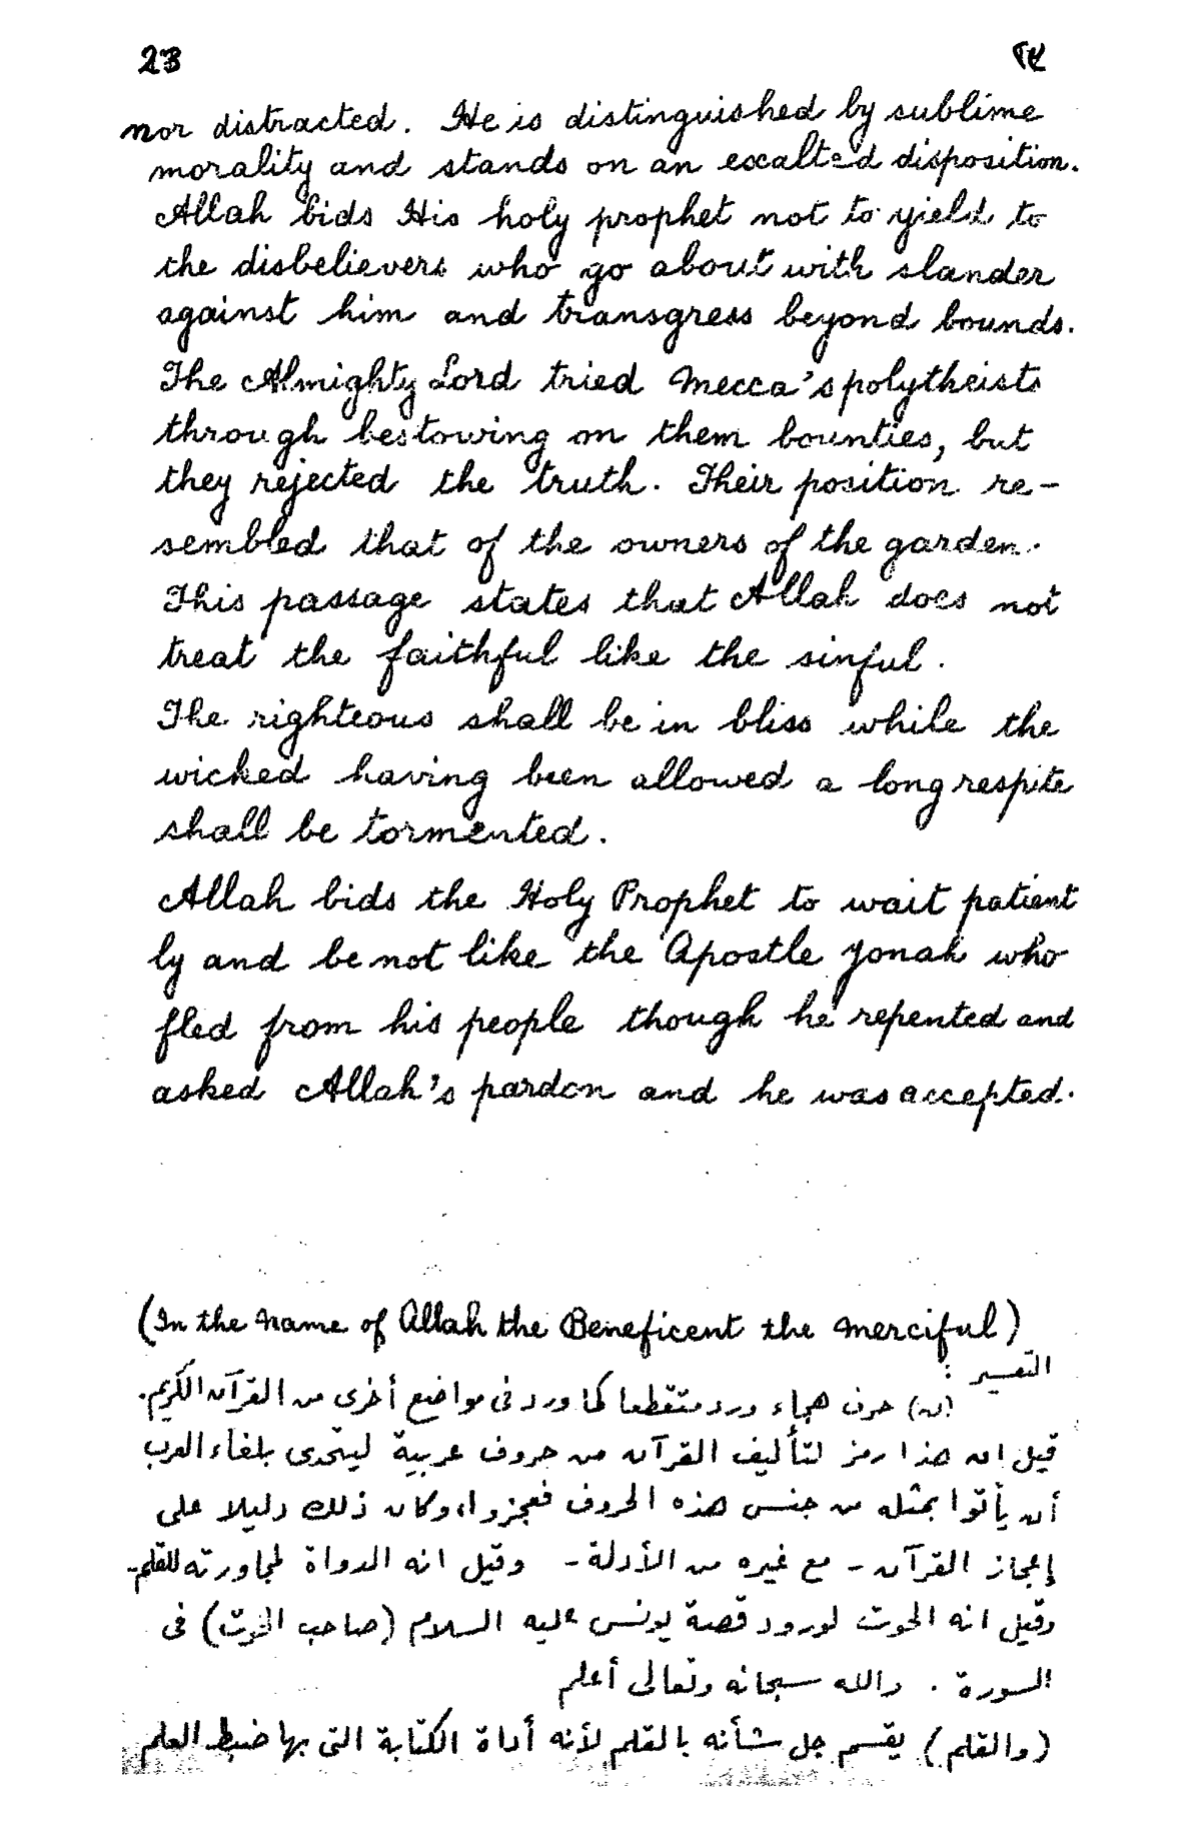 23 ٢٣
nor distracted. He is distinguished by sublime
morality and stands on an exalted disposition.
Allah bids His holy prophet not to yield to
the disbelievers who go about with slander
against him and transgress beyond bounds.
The Almighty Lord tried Mecca's polytheists
through bestowing on them bounties, but
they rejected the truth. Their position re-
sembled that of the owners of the garden.
This passage states that Allah does not
treat the faithful like the sinful.
The righteous shall be in bliss while the
wicked having been allowed a long respite
shall be tormented.
Allah bids the Holy Prophet to wait patient
ly and be not like the Apostle Jonah who
fled from his people though he repented and
asked Allah's pardon and he was accepted.
(In the name of Allah the Beneficent the merciful)
التفسير :
(ن) حرف هجاء ورد متقطعا كما ورد فى مواضع أخرى من القرآن الكريم.
قيل ان هذا رمز لتأليف القرآن من حروف عربية ليتحدى بلغاء العرب
أن يأتوا بمثله من جنس هذه الحروف فعجزوا، وكان ذلك دليلا على
إعجاز القرآن - مع غيره من الأدلة - وقيل انه الدواة لمجاورته للقلم-
وقيل انه الحوت لورود قصة يونس عليه السلام (صاحب الحوت) فى
السورة . والله سبحانه وتعالى أعلم
(والقلم) يقسم جل شأنه بالقلم لأنه أداة الكتابة التى بها ضبط العلم